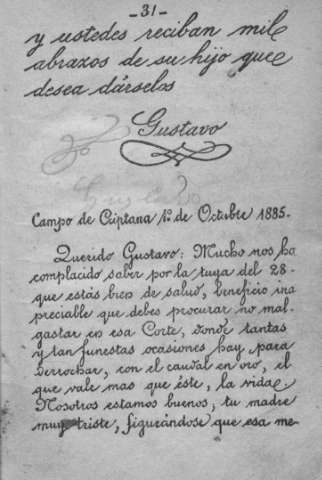 -31-
y ustedes reciban mil
abrazos de su hijo que
desea dárselos
Gustavo
Campo de Criptana 1º de Octubre 1885.
Querido Gustavo: Mucho nos ha
complacido saber por la tuya del 28-
que estás bien de salud, beneficio ina
preciable que debes procurar no mal-
gastar en esa Corte, donde tantas
y tan funestas ocasiones hay para
derrochar, con el caudal en oro, el
que vale mas que éste, la vida.
Nosotros estamos buenos; tu madre
muy triste, figurándose que esa me